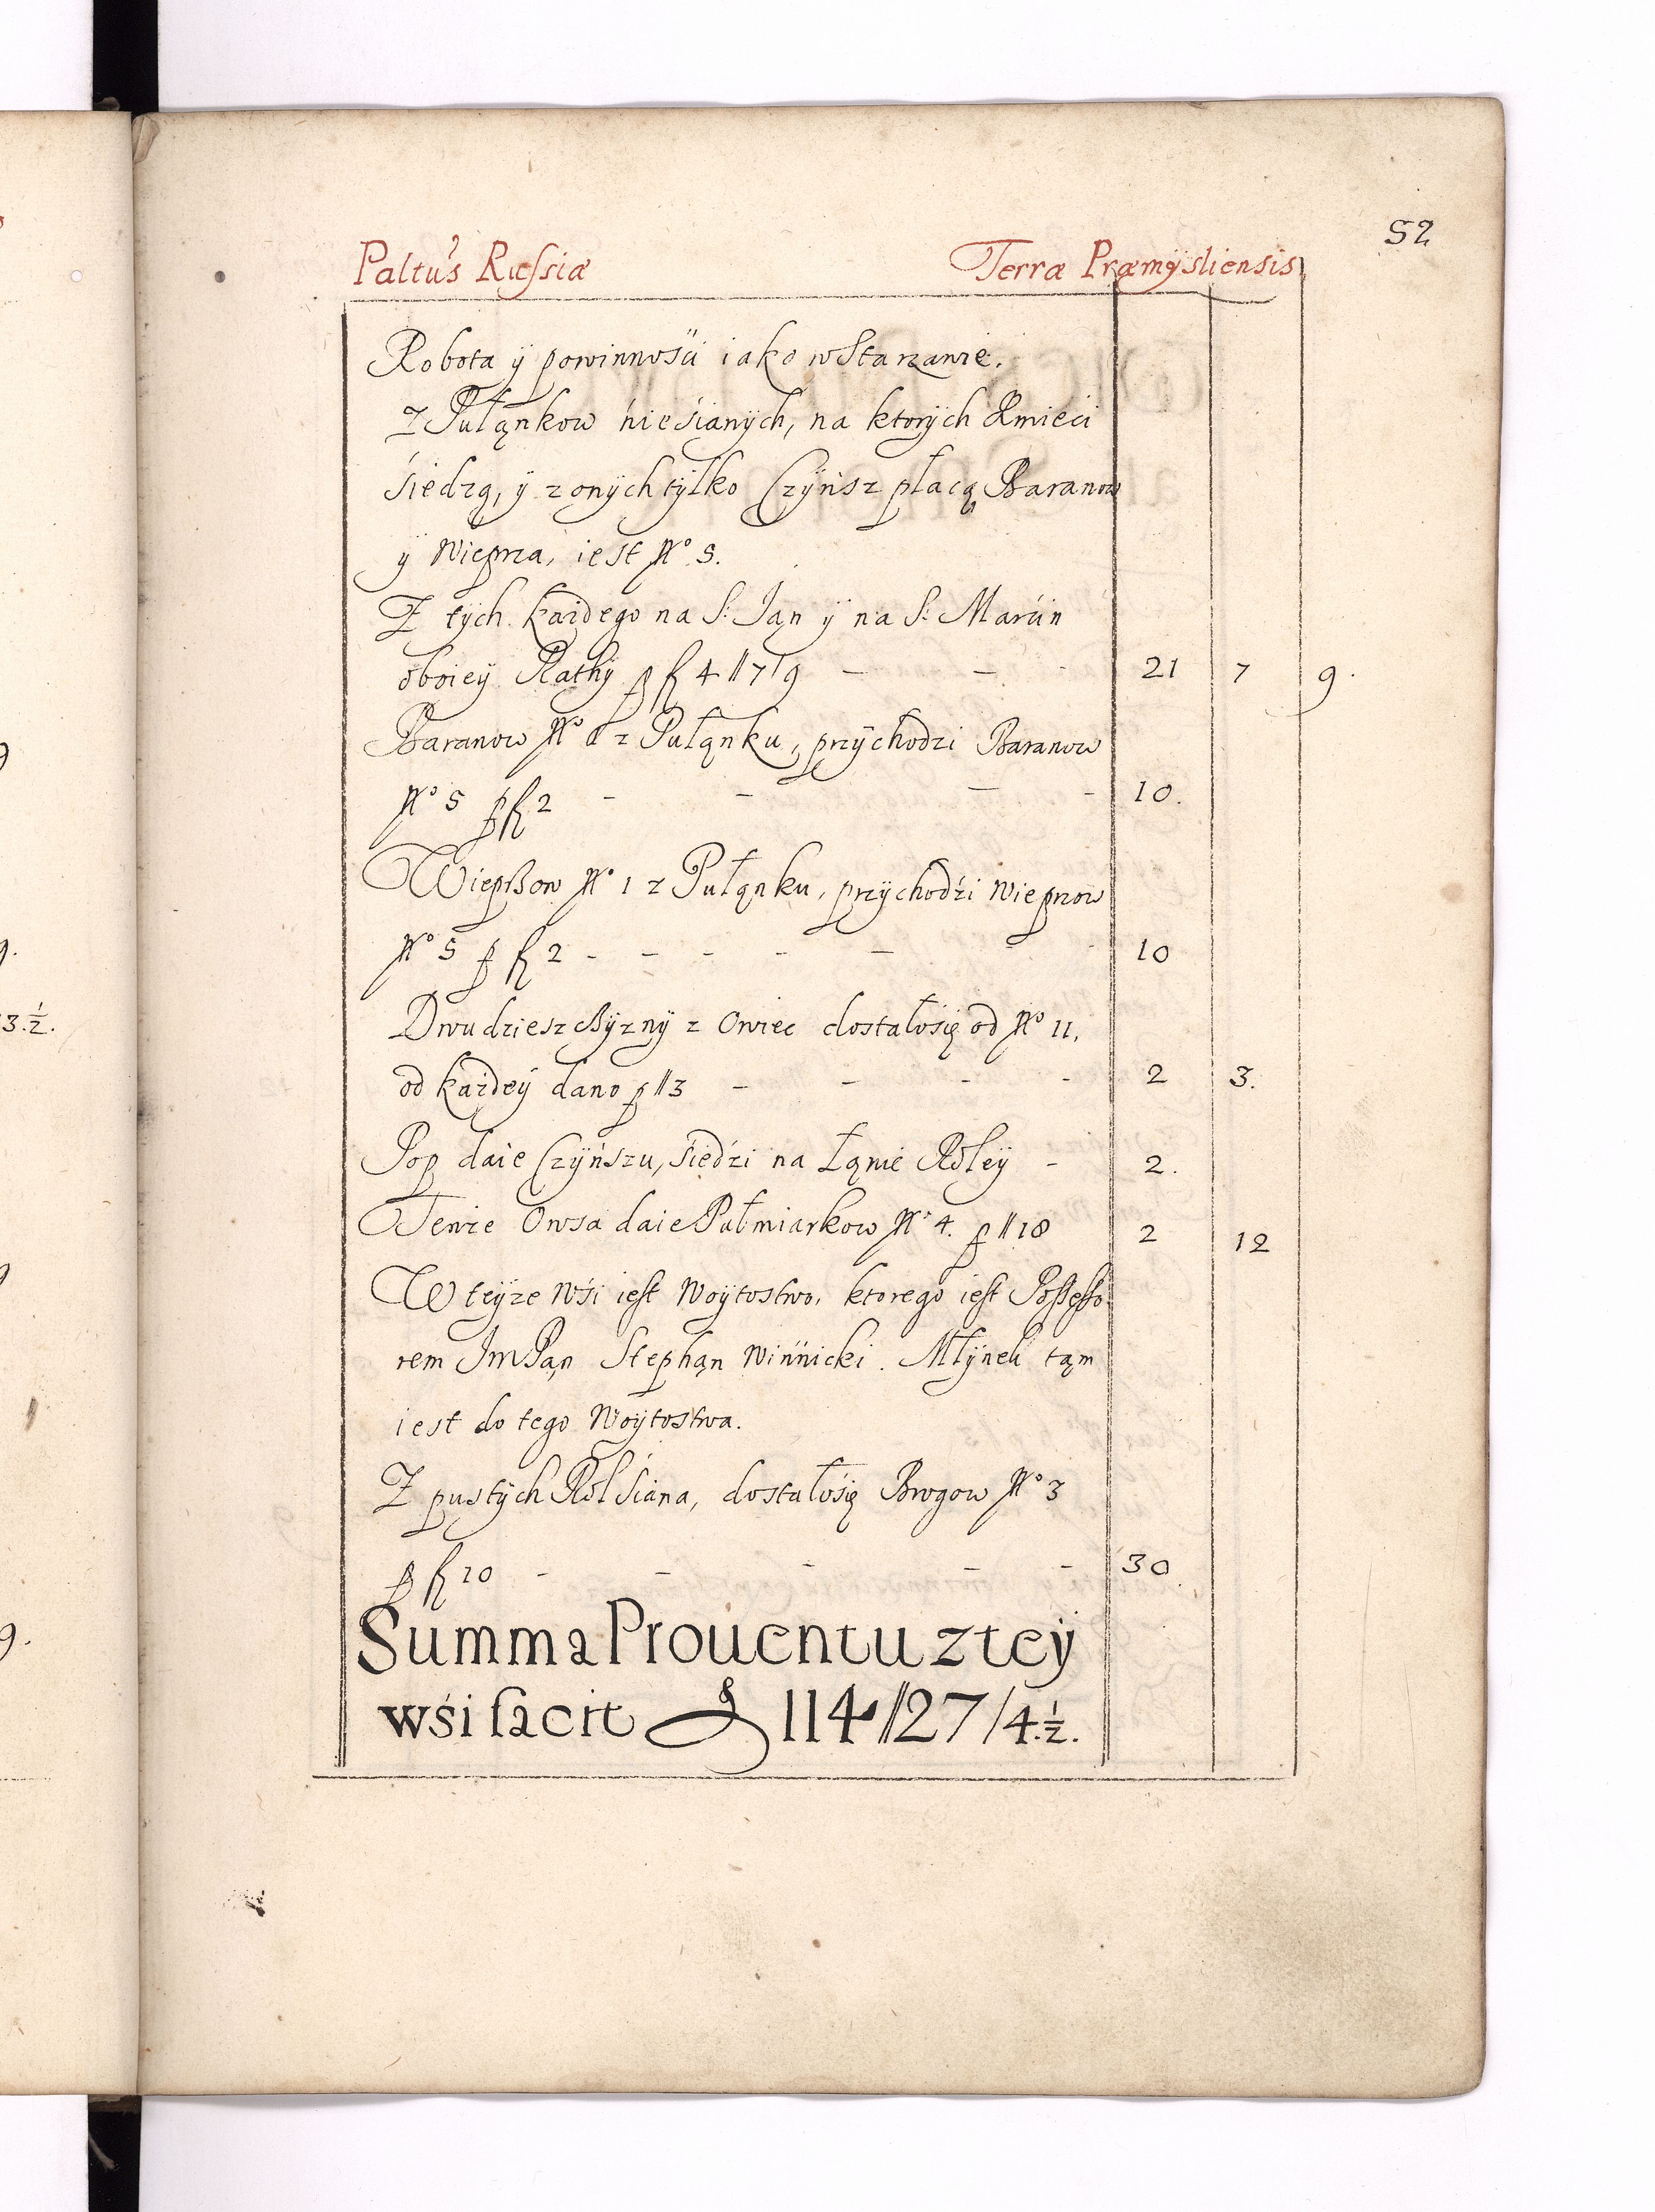 52
Paltus Russiæ Terræ Præmÿsliensis
Robota ÿ powinnośći iako w Starzawie.
Z Pułąnkow nieśianÿch, na ktorÿch Kmieći
śiedzą, ÿ z onÿch tÿlko Czÿńsz płacą Baranow
ÿ Wieprza, iest No 5.
Z tÿch każdego na S: Ian ÿ na S: Marćin
oboieÿ Rathÿ p fl 4 // 7 / 9 — — - 21 7 9.
Baranow No 1 z Pułąnku, przÿchodzi Baranow
No 5 p fl 2 - - — - 10.
Wiepßow No 1 z Pułąnku, przÿchodźi Wieprzow
No 5 p fl 2 - - - - — - - 10
Dwudzieszcßÿznÿ z Owiec dostałośię od No 11.
od każdeÿ dano p // 3 - - - - 2 3.
Pop daie Czÿńszu, śiedźi na Łąnie Roleÿ - 2.
Tenże Owsa daie Pułmiarkow No 4. p // 18 2 12
W teÿże Wśi iest Woÿtostwo, ktorego iest Poßeßo
rem JmPąn Stephąn Winnicki. Młÿnek tąm
iest do tego Woÿtostwa.
Z pustÿch Rol Śiana, dostałośię Brogow No 3
p fl 10 - - - - - 30.
Summa Prouentu z teÿ
wśi facit fl 114 // 27 / 4. 1/2.
9
9.
3. 1/2.
9
9.